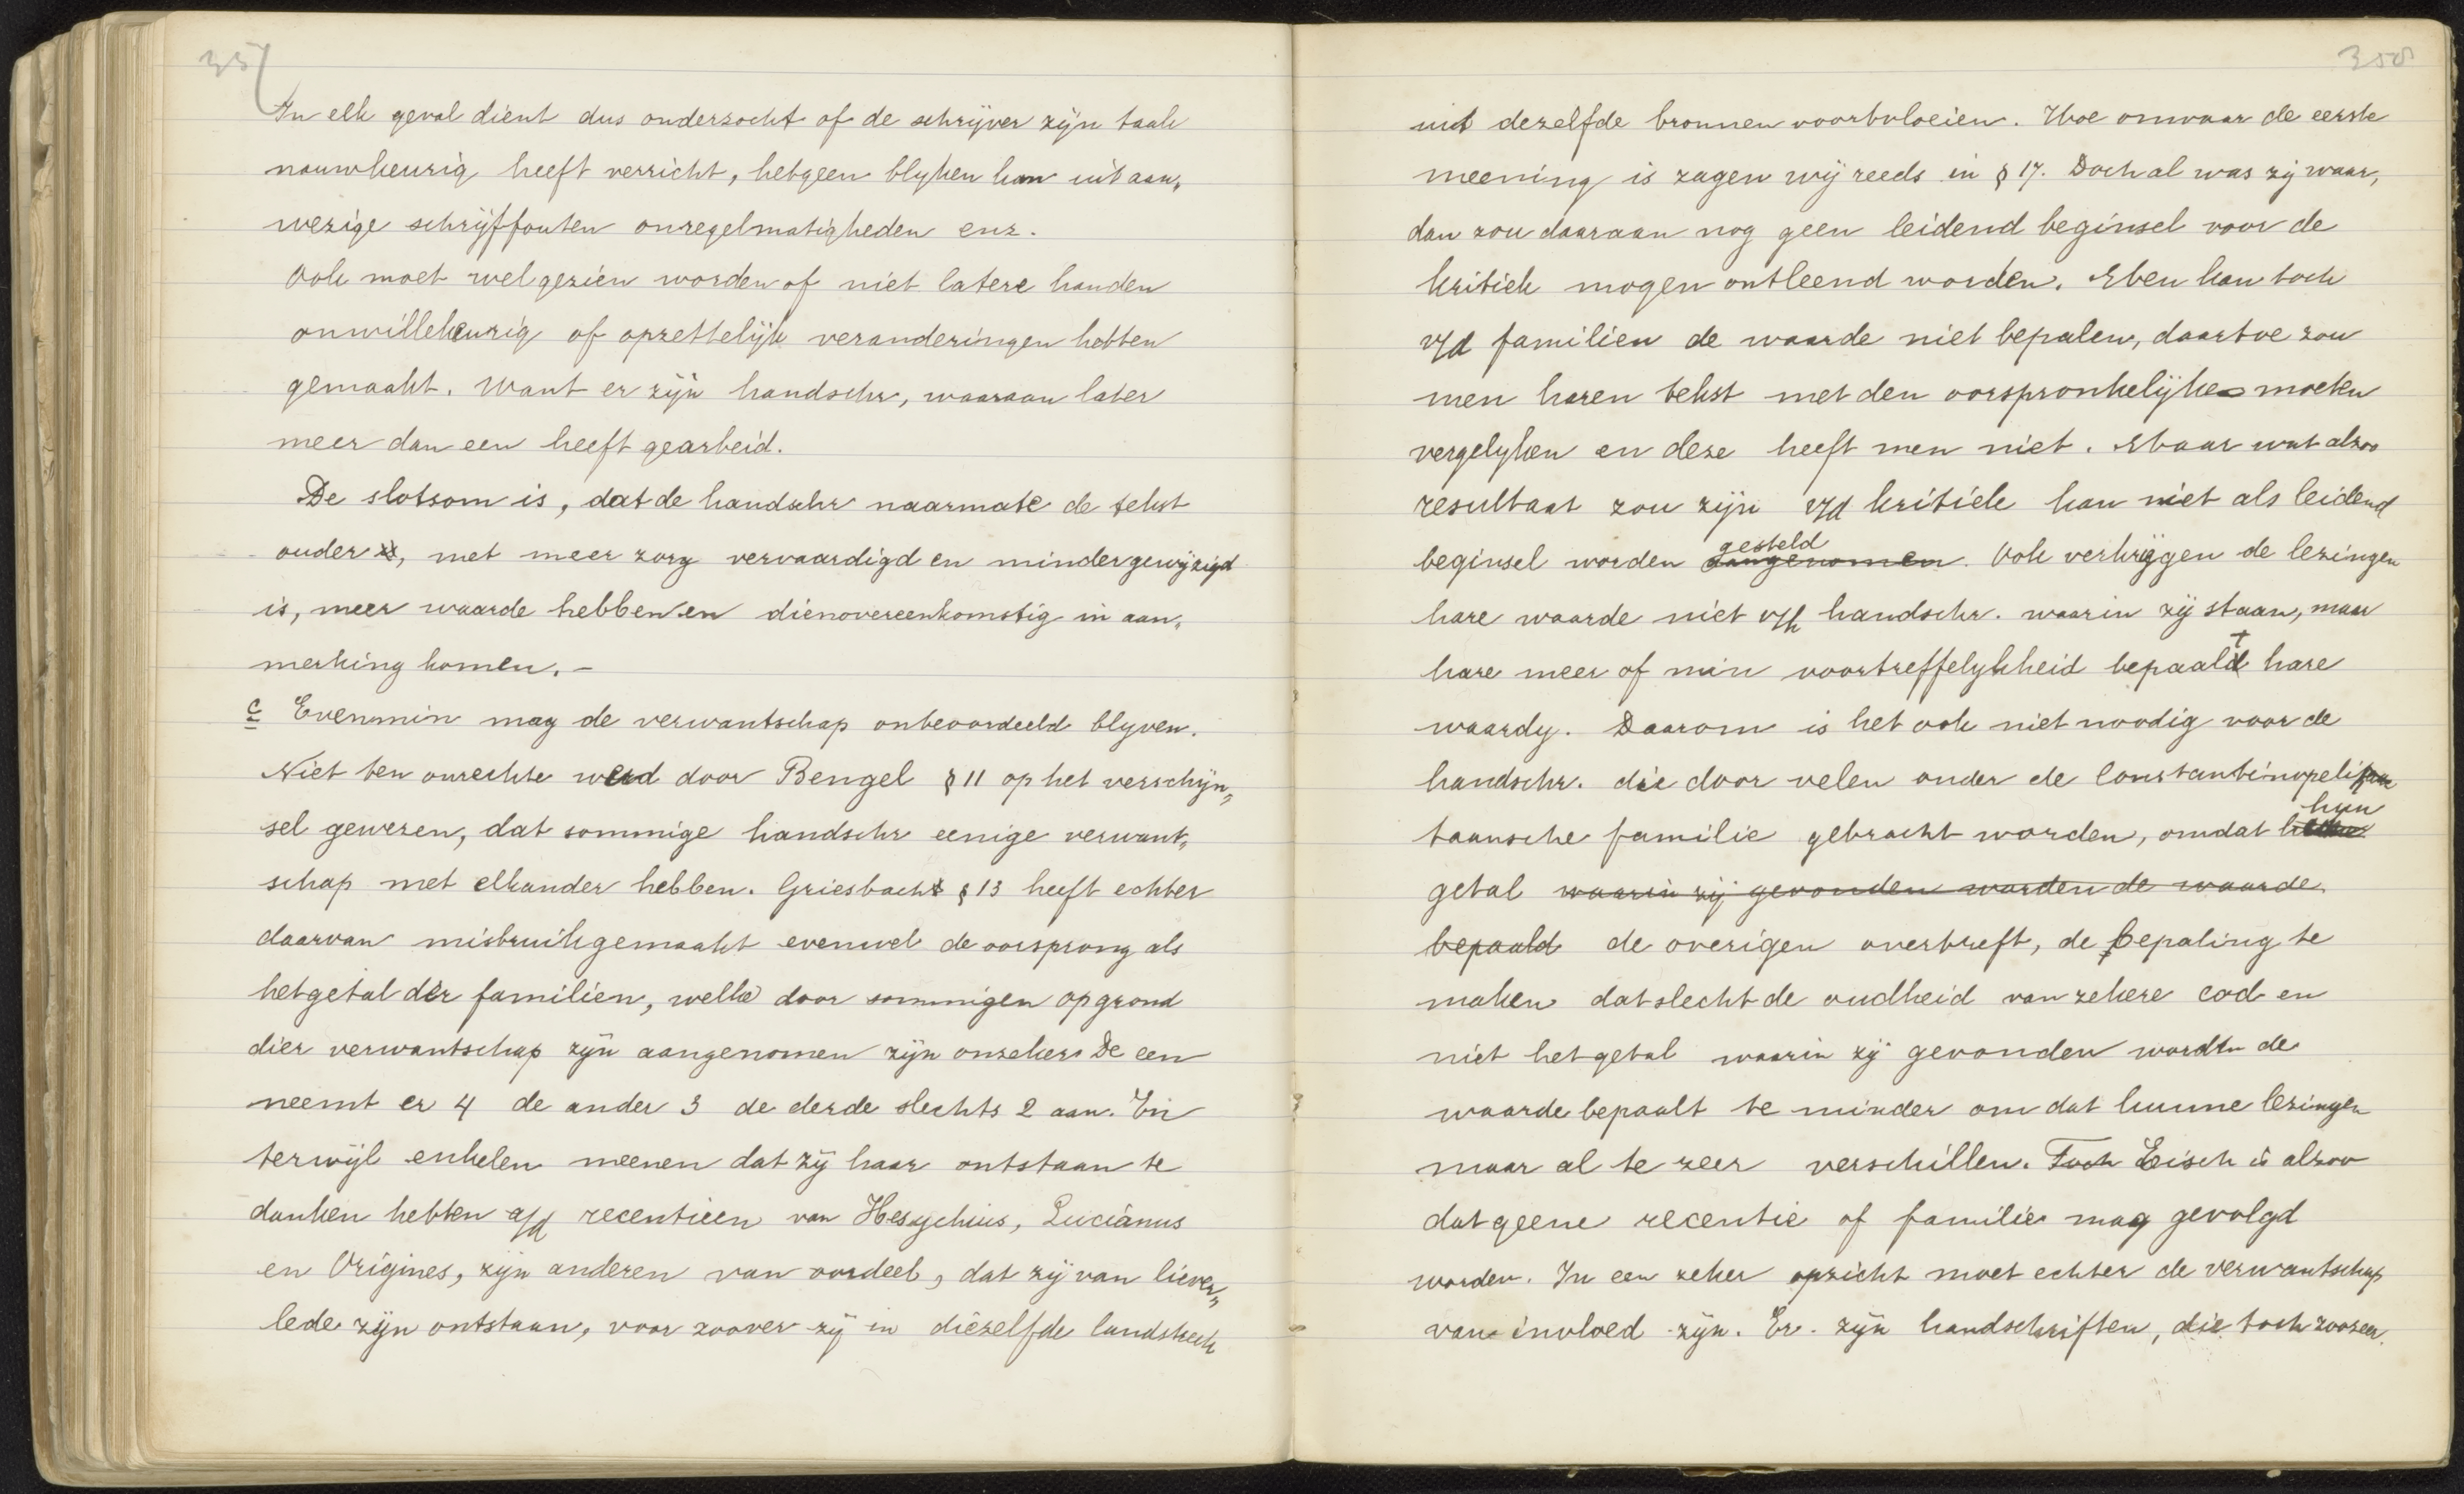 357
In elk geval dient dus onderzocht of de schrijver zijn taak
nauwkeurig heeft verricht, hetgeen blyken kan uit aan„
wezige schrijffouten onregelmatigheden enz.
Ook moet wel gezien worden of niet latere handen
onwillekeurig of opzettelijk veranderingen hebben
gemaakt. Want er zijn handschr, waaraan later
meer dan een heeft gearbeid.
De slotsom is, dat de handschr naarmate de tekst
ouder is, met meer zorg vervaardigd en minder gewijzigd
is, meer waarde hebben en dienovereenkomstig in aan„
merking komen. –
c Evenmin mag de verwantschap onbeoordeeld blyven.
Niet ten onrechte werd door Bengel § 11 op het verschijn„
sel gewezen, dat sommige handschr eenige verwant„
schap met elkander hebben. Griesbach § 13 heeft echter
daarvan misbruik gemaakt evenwel de oorsprong als
het getal der familien, welke door sommigen op grond
dier verwantschap zijn aangenomen zijn onzeker. De een
neemt er 4 de ander 3 de derde slechts 2 aan. En
terwijl enkelen meenen dat zij haar ontstaan te
danken hebben a/d recentieen van Hesychius, Lucianus
en Origines, zijn anderen van oordeel, dat zij van liever„
lede zijn ontstaan, voor zoover zij in diezelfde landstreek
358
uit dezelfde bronnen voortvloeien. Hoe onwaar de eerste
meening is zagen wij reeds in § 17. Doch al was zij waar,
dan zou daaraan nog geen leidend beginsel voor de
kritiek mogen ontleend worden. Men kan toch
v/d familien de waarde niet bepalen, daartoe zou
men haren tekst met den oorspronkelijke moeten
vergelyken en deze heeft men niet. Maar wat alzoo
resultaat zou zijn v/d kritiek kan niet als leidend
beginsel worden aangenomen gesteld. Ook verkrijgen de lezingen
hare waarde niet v/h handschr. waarin zij staan, maar
hare meer of min voortreffelykheid bepaalt hare
waardy. Daarom is het ook niet noodig voor de
handschr. die door velen onder de Constantinopoli
taansche familie gebracht worden, omdat hun
getal waarin zij gevonden worden de waarde
bepaald de overigen overtreft, de bepaling te
maken dat slecht de oudheid van zekere cod en
niet het getal waarin zij gevonden worden de
waarde bepaalt te minder om dat hunne lezingen
maar al te zeer verschillen. Toch Eisch is alzoo
dat geene recentie of familie mag gevolgd
worden. In een zeker opzicht moet echter de verwantschap
van invloed zijn. Er zijn handschriften, die toch zoozeer